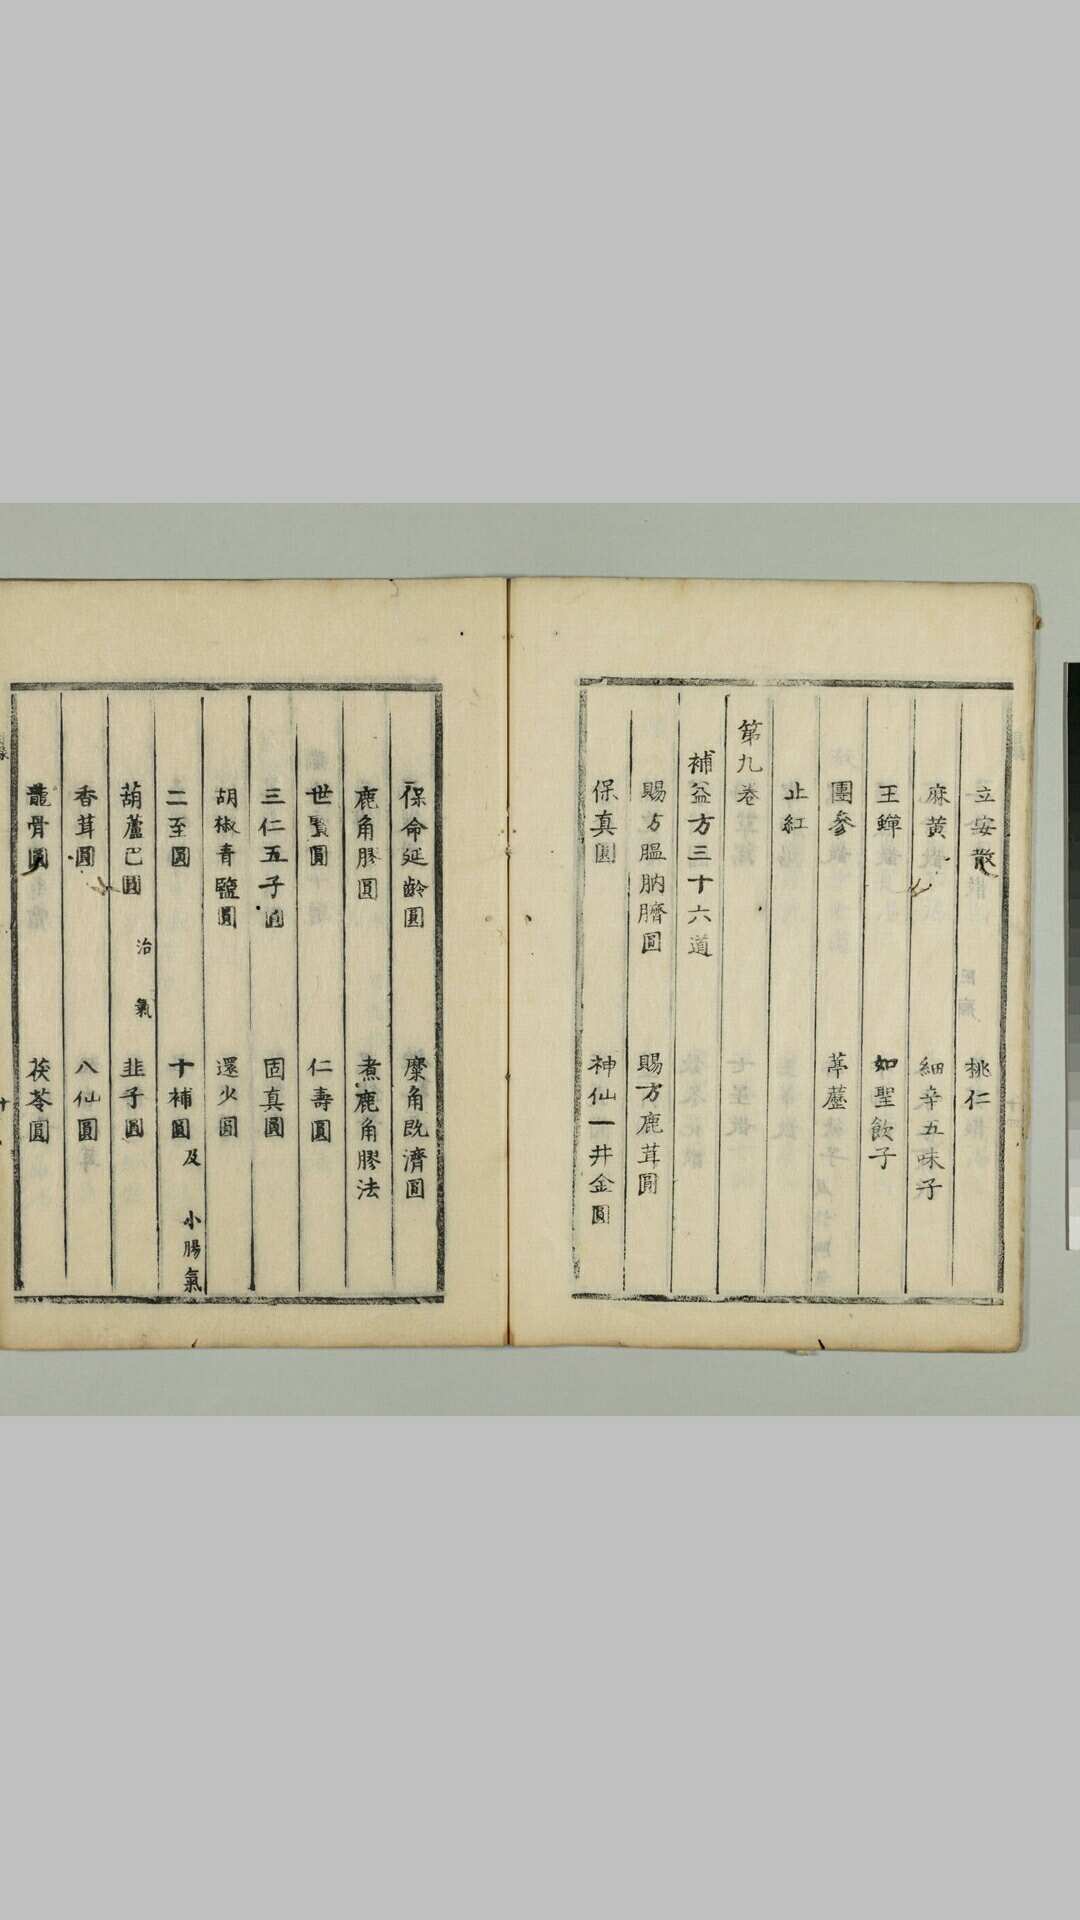 立安散 桃仁
麻黄 細辛五味子
王蟬 如聖飲子
團參 葶藶
止紅
第九卷
補益方三十六道
賜方膃肭臍圓 賜方鹿茸圓
保真圓 神仙一井金圓
保命延齡圓 麋角既濟圓
鹿角膠圓 煮鹿角膠法
世賢圓 仁壽圓
三仁五子圓 固真圓
胡椒青鹽圓 還少圓
二至圓 十補圓及小腸氣
葫蘆巴圓治氣 韭子圓
香茸圓 八仙圓
龍骨圓 茯苓圓